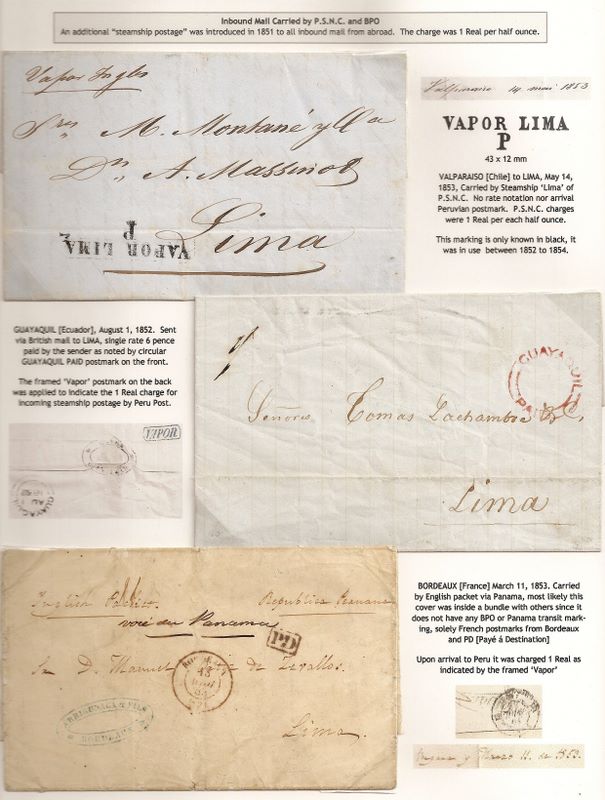 Inbound Mail Carried by P.S.N.C. and BPO
An additional “steamship postage” was introduced in 1851 to all inbound mail from abroad. The charge was 1 Real per half ounce.
Vapor Ingles
Sres M. Montané y Ca
Dn A. Massinot
Lima
VAPOR LIMA
P
Valparaiso 14 mai 1853
VAPOR LIMA
P
43 x 12 mm
VALPARAISO [Chile] to LIMA, May 14,
1853, Carried by Steamship ‘Lima’ of
P.S.N.C. No rate notation nor arrival
Peruvian postmark. P.S.N.C. charges
were 1 Real per each half ounce.
This marking is only known in black, it
was in use between 1852 to 1854.
GUAYAQUIL [Ecuador], August 1, 1852. Sent
via British mail to LIMA, single rate 6 pence
paid by the sender as noted by circular
GUAYAQUIL PAID postmark on the front.
The framed ‘Vapor’ postmark on the back
was applied to indicate the 1 Real charge for
incoming steamship postage by Peru Post.
VAPOR
GUAYAQUIL
AU
GUAYAQUIL
PAID
Señores Tomas Lachambre
Lima
English Packet
Republica Peruana
voie de Panama
PD
Sr. D. Manuel de Zevallos.
BORDEAUX
13
Lima.
& FILS
BORDEAUX
BORDEAUX [France] March 11, 1853. Carried
by English packet via Panama, most likely this
cover was inside a bundle with others since it
does not have any BPO or Panama transit mark-
ing, solely French postmarks from Bordeaux
and PD [Payé á Destination]
Upon arrival to Peru it was charged 1 Real as
indicated by the framed ‘Vapor’
y Marzo 11. de 1853.